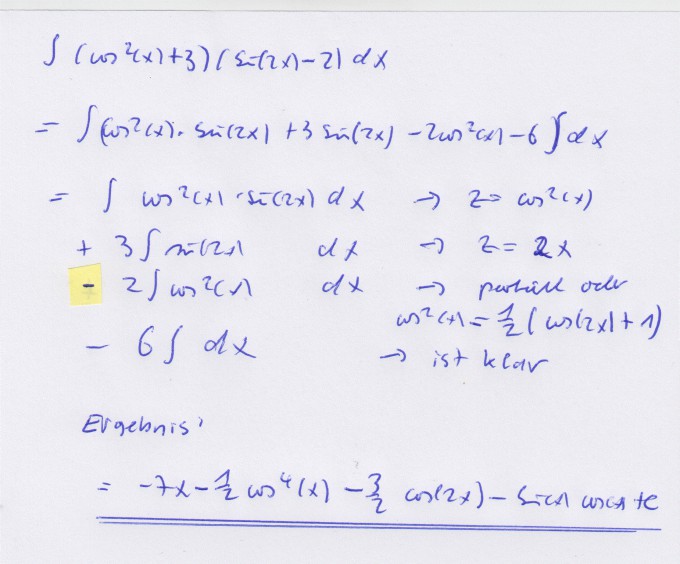 ∫ (cos²(x)+3)(sin(2x)-2) dx
= ∫(cos²(x)·sin(2x)+3 sin(2x)-2cos²(x)-6)dx
= ∫ cos²(x)·sin(2x) dx → z=cos²(x)
+ 3∫sin(2x) dx → z=2x
- 2∫cos²(x) dx → partiell oder
cos²(x)=½(cos(2x)+1)
- 6∫ dx → ist klar
Ergebnis:
= -7x-½cos⁴(x)-3/2 cos(2x)-sin(x) cos(x)+c